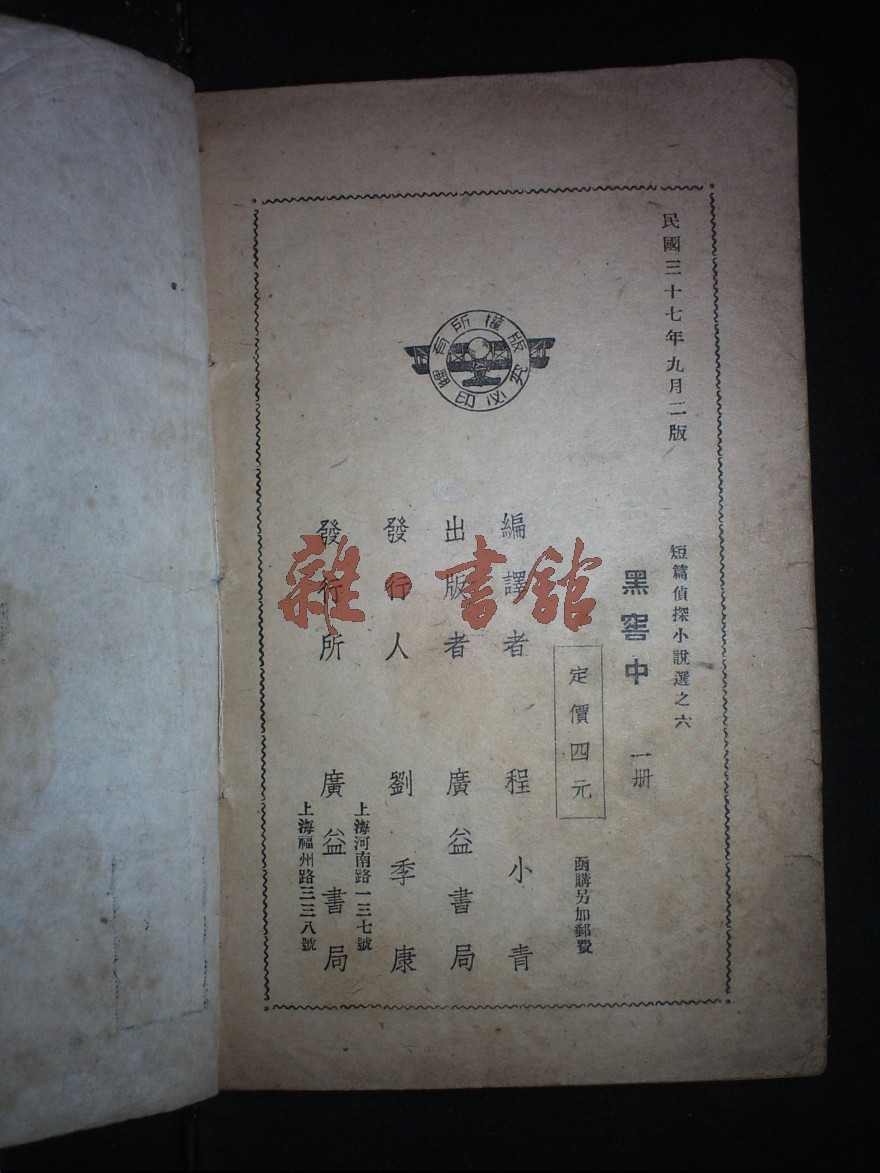 民國三十七年九月二版
短篇偵探小說選之六
黑窖中 一册
定價四元
函購另加郵費
編譯者 程小青
出版者 廣益書局
發行人 劉季康
發行所 廣益書局
上海河南路一三七號
上海福州路三三八號
版權所有
翻印必究
雜·書舘